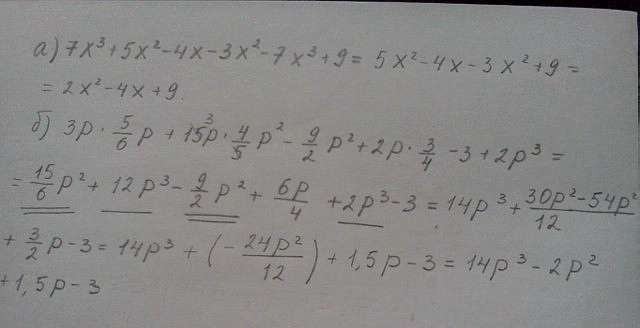 а) 7x³+5x²-4x-3x²-7x³+9= 5x²-4x-3x²+9=
= 2x²-4x+9.
б) 3p · 5/6 p + 15p · 4/5 p² - 9/2 p² + 2p · 3/4 - 3 + 2p³ =
= 15/6 p² + 12p³ - 9/2 p² + 6p/4 + 2p³ - 3 = 14p³ + (30p²-54p²)/12
+ 3/2 p - 3 = 14p³ + (- 24p²/12) + 1,5p - 3 = 14p³ - 2p²
+1,5p-3